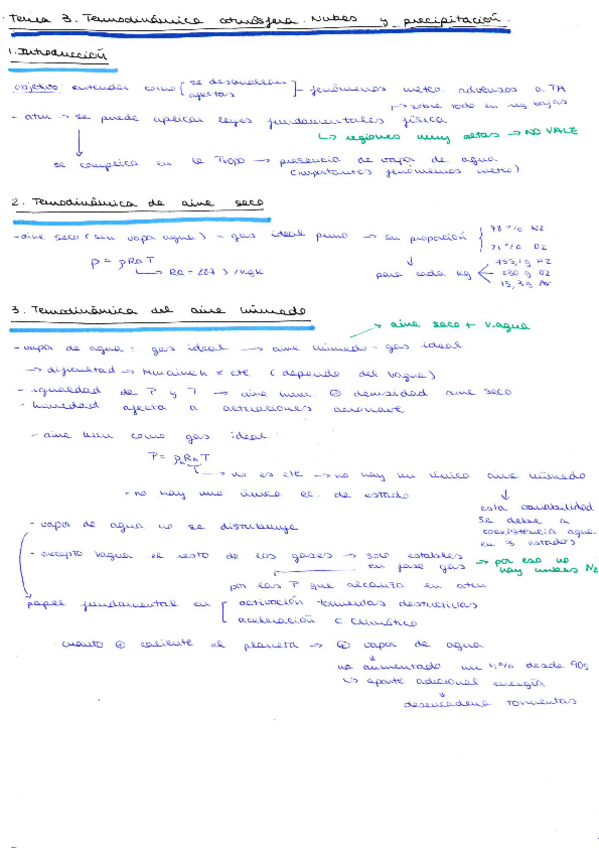 Tema 3. Termodinámica atmósfera. Nubes y precipitación.
1. Introducción
objetivo: entender como [se desarrollan
afectan] - fenómenos meteo. adversos a TA
↳ sobre todo en reg bajas
- atm → se puede aplicar leyes fundamentales física
↳ regiones muy altas → NO VALE
se complica en la Trop → presencia de vapor de agua
(importantes fenómenos meteo)
2. Termodinámica de aire seco
- aire seco (sin vapor agua) - gas ideal puro → su proporción { 78 % N2
21 % O2
p = ρRaT
↳ Ra = 287 J/kgK
para cada kg < 755,1g N2
230 g O2
13,3g Ar
3. Termodinámica del aire húmedo
→ aire seco + v.agua
- vapor de agua = gas ideal → aire húmedo - gas ideal
→ dificultad → ≠ cte (depende del Vagua)
- igualdad de P y T → aire hum. ⊖ densidad aire seco
- humedad afecta a actuaciones aeronave
- aire hum como gas ideal:
P = ρhRhT
→ no es cte → no hay un único aire húmedo
- no hay una única ec. de estado
esta variabilidad
se debe a
coexistencia agua
en 3 estados
- vapor de agua no se distribuye
- excepto Vagua el resto de los gases → solo estables
en fase gas → por eso no
hay nubes N2
por las P que alcanza en atm
papel fundamental en [ activación tormentas destructivas
aceleración C Climático
cuanto ⊕ caliente el planeta → ⊕ vapor de agua
ha aumentado un 4% desde 90s
↳ aporte adicional energía
↳ desencadena tormentas